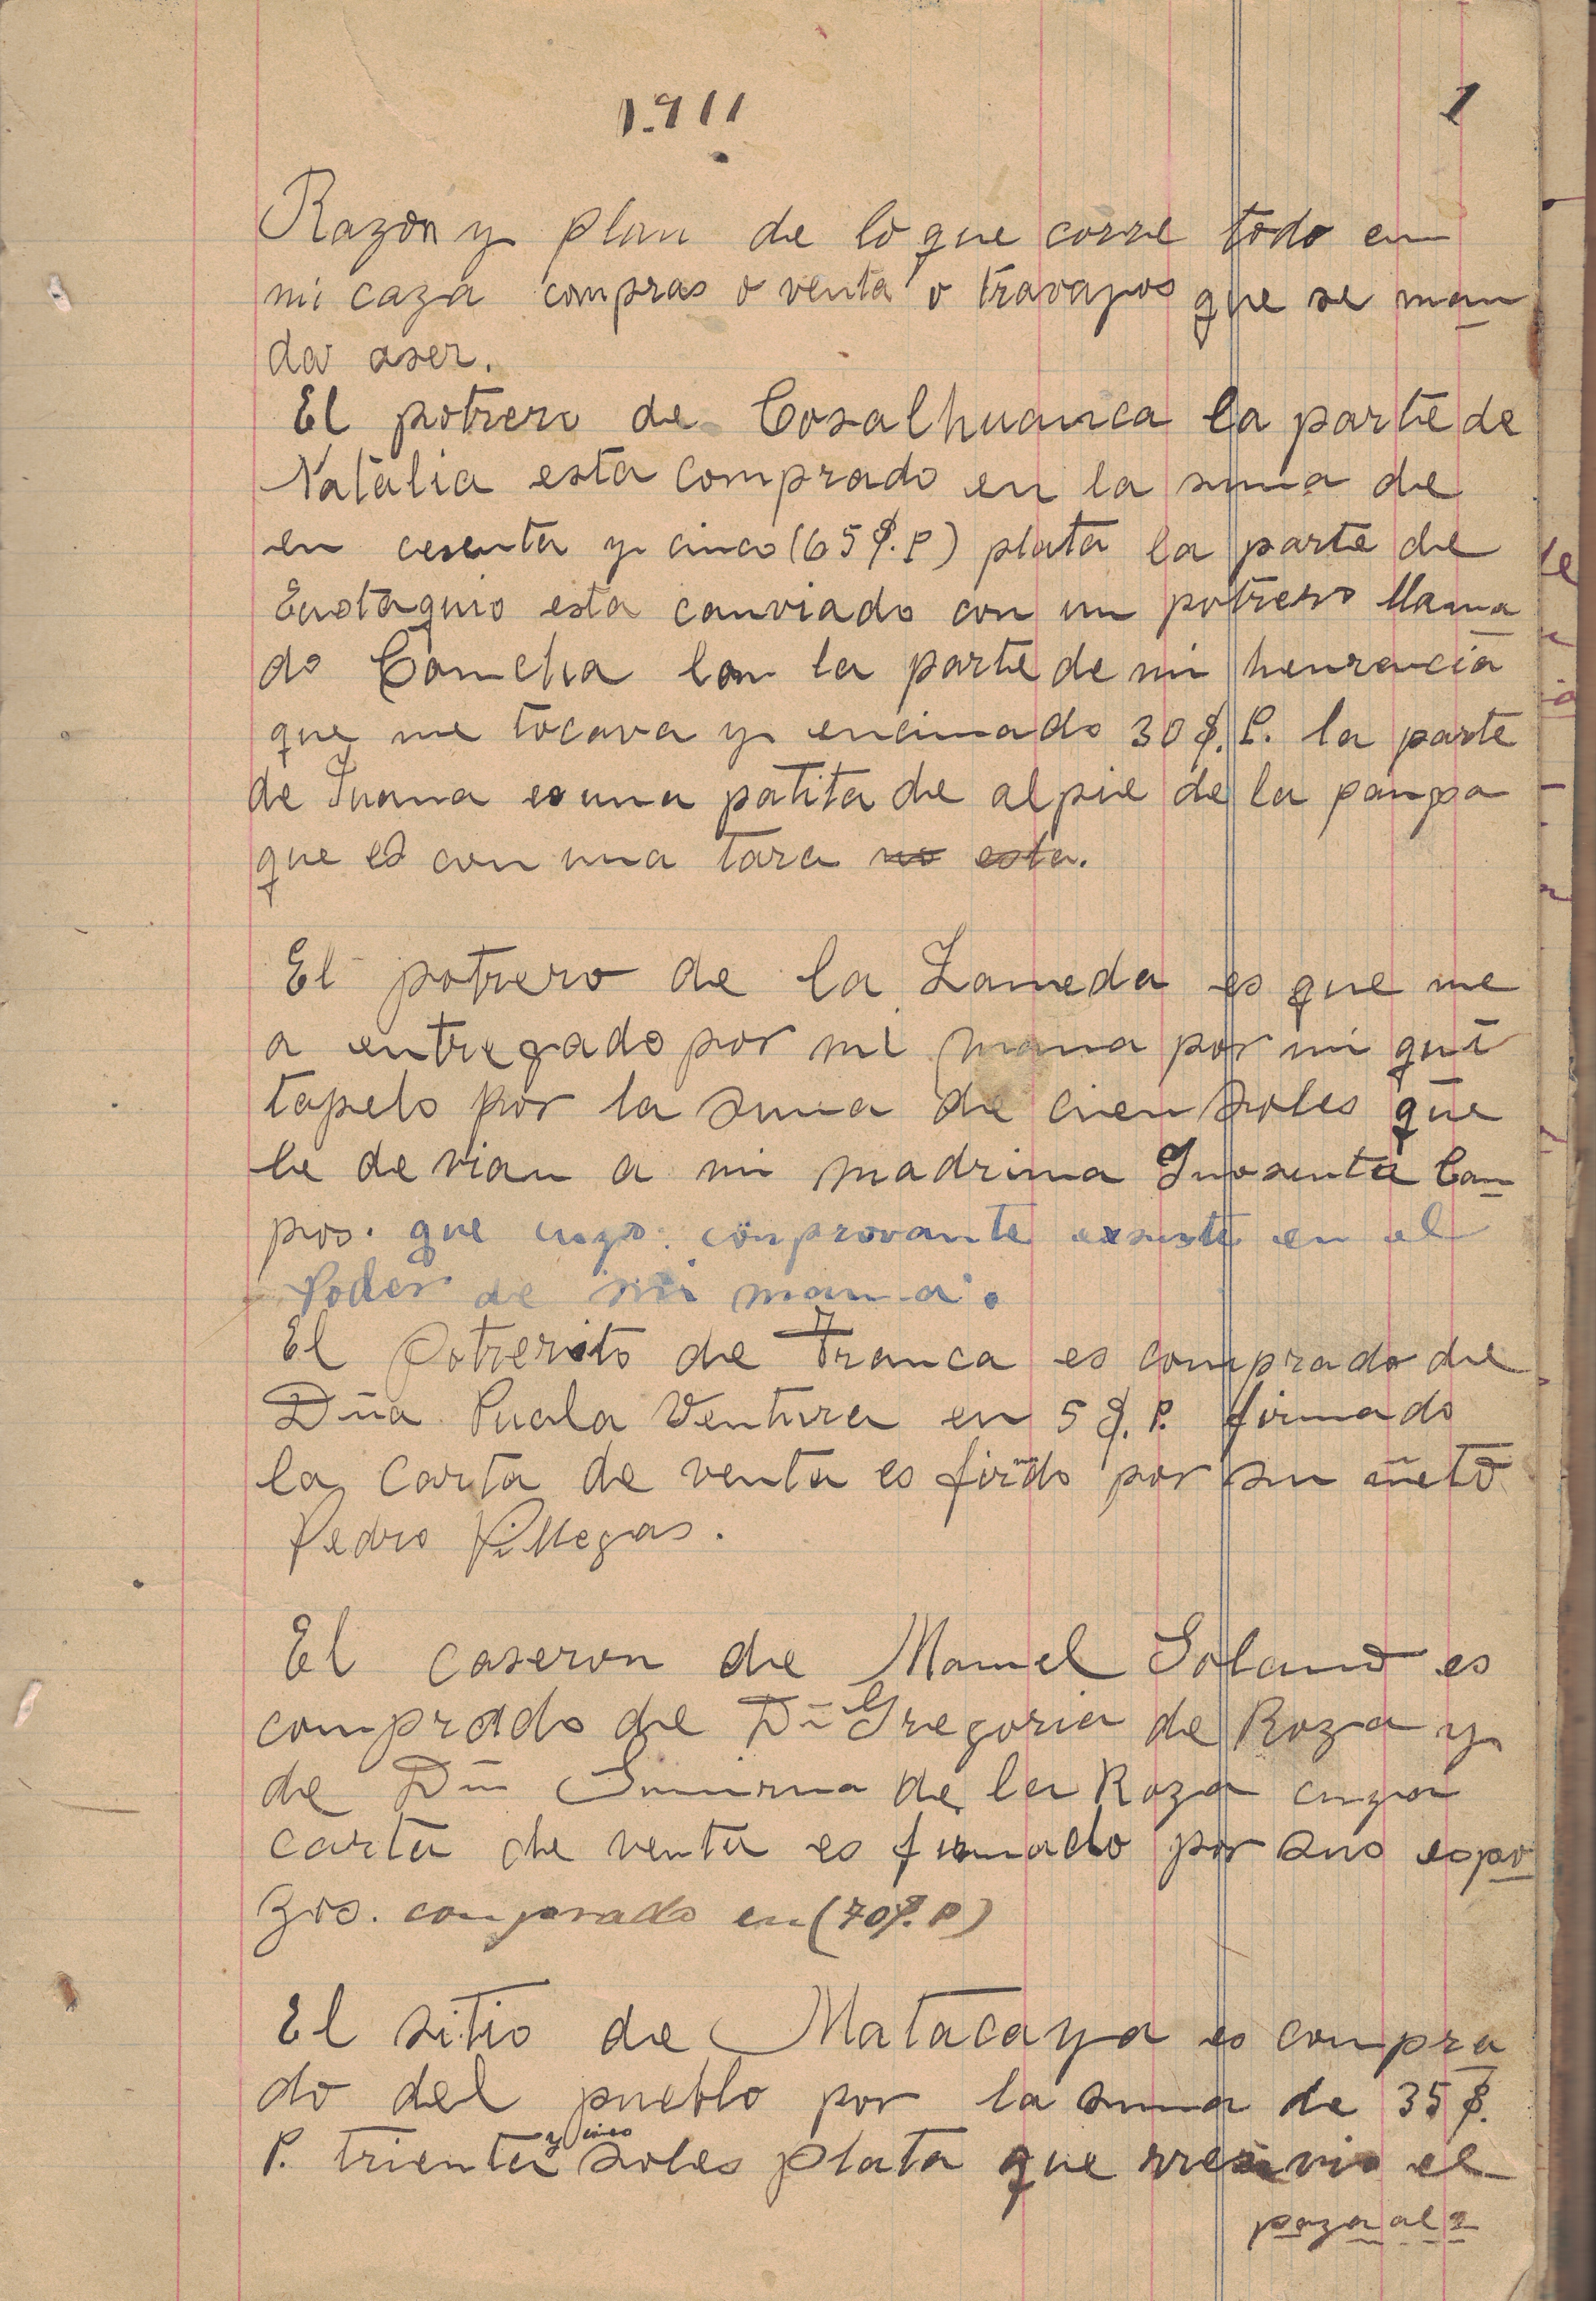 1.911
1
Razon y plan de lo que corre todo en
mi caza compras o venta o travajos que se man
da aser.
El potrero de Cosalhuanca la parte de
Natalia esta comprado en la suma de
en cesenta y cinco (65 $. P) plata la parte de
Eustaquio esta canviado con un potrero llama
do Comcha con la parte de mi henrencia
que me tocava y encimado 30 $. P. la parte
de Juana es una patita de al pie de la panpa
que es con una tara no esta.
El potrero de la Lameda es que me
a entregado por mi mama por mi qui
tapelo por la suma de cien soles que
le devian a mi madrina Inosenta Can
pos. que cuyo conprovante existe en el
Poder de mi mama.
El Potrerito de Tranca es comprado de
Dña Puala Ventura en 5 $. P. firmado
la carta de venta es firdo por su ñeto
Pedro Villegas.
El caseron de Manuel Solano es
comprado de Dñ Gregoria de Roza y
de Dñ de la Roza cuya
carta de venta es firmado por sus espo
zos. conprado en (70 $. P)
El sitio de Matacaya es conpra
do del pueblo por la suma de 35 $.
P. trienta y cinco soles plata que rresivio el
paza al 2